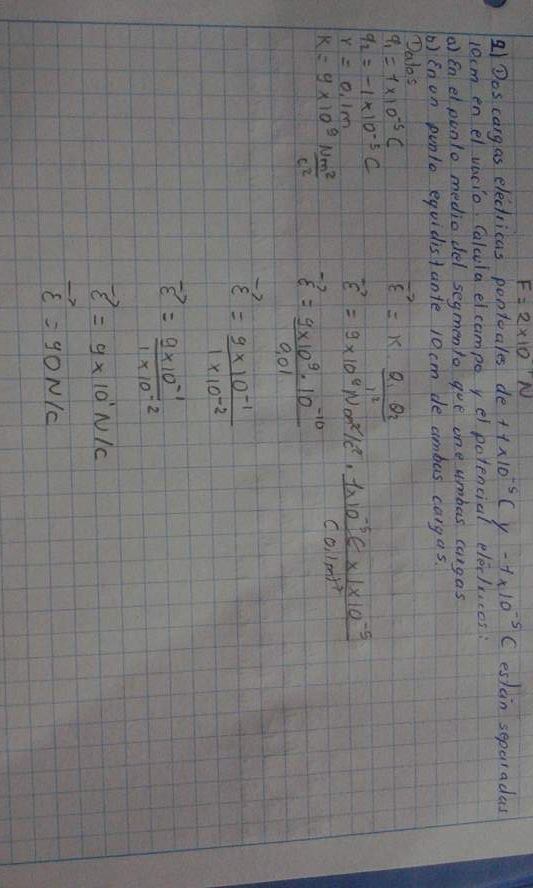 F = 2x10⁻⁴ N
9) Dos cargas eléctricas puntuales de +1x10⁻⁵ C y -1x10⁻⁵ C están separadas
10cm en el vacío. Calcula el campo y el potencial eléctricos:
a) En el punto medio del segmento que une ambas cargas
b) En un punto equidistante 10cm de ambas cargas.
Datos
q₁ = 1x10⁻⁵ C
q₂ = -1x10⁻⁵ C
r = 0,1m
K = 9x10⁹ Nm²/C²
ε = K. Q₁ Q₂ / r²
ε = 9x10⁹ Nm²/C² . 1x10⁻⁵ C x 1x10⁻⁵ / (0,1m)²
ε = 9x10⁹ . 10⁻¹⁰ / 0,01
ε = 9x10⁻¹ / 1x10⁻²
ε = 9x10⁻¹ / 1x10⁻²
ε = 9x10¹ N/c
ε = 90 N/c